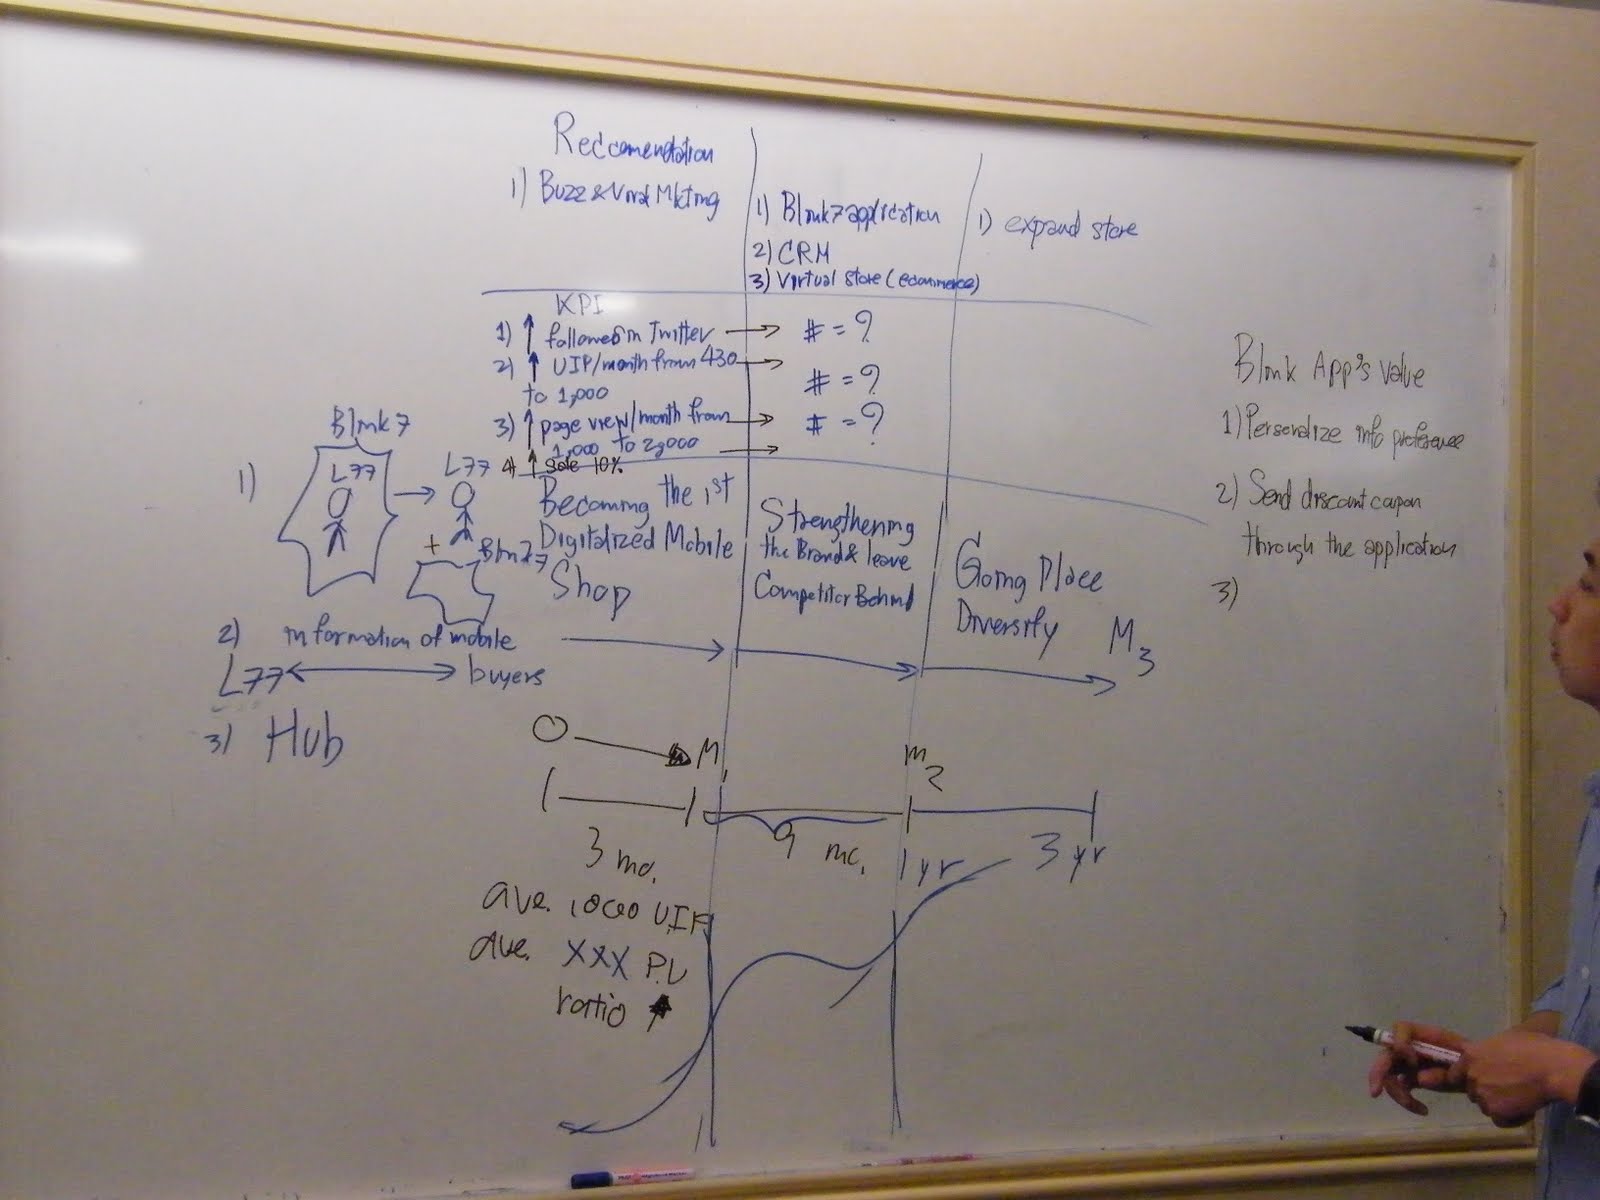 Reccomendation
1) Buzz & Viral Mkting
1) Blink7 application
2) CRM
3) Virtual store (ecommerce)
1) expand store
KPI
1) ↑ follower in Twitter → # = ?
2) ↑ UIP/month from 430 →
to 1,000 # = ?
3) ↑ page view/month from → # = ?
1,000 to 2,000 →
4) ↑ sale 10%
Becoming the 1st
Digitalized Mobile
Shop
Strengthening
the Brand & leave
Competitor Behind
Going Place
Diversify
M3
Blink7
1) L77 → L77
+ Blink7
2) information of mobile
L77 ↔ buyers
3) Hub
0 → M1
m2
3 mo.
9 mo.
1 yr
3 yr
ave. 1000 U.I.P
ave. XXX P.V
ratio ↑
Blink App's value
1) Personalize info preference
2) Send discount coupon
through the application
3)